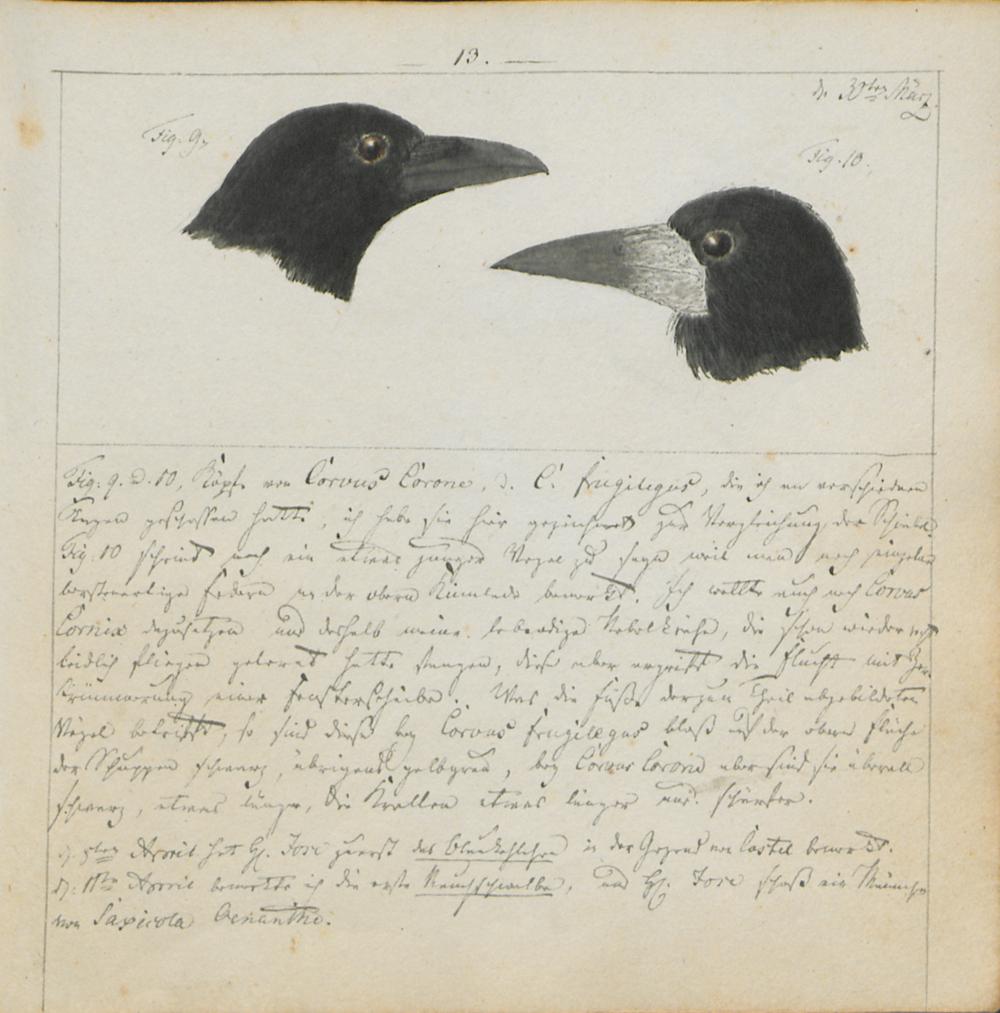 13.
d. 30ten März
Fig. 9.
Fig. 10.
Fig: 9. u. 10, Köpfe von Corvus Corone, u. C. frugilegus, die ich an verschiednen
Tagen geschossen hatte, ich habe sie hier gezeichnet zur Vergleichung der Schnäbel.
Fig: 10 scheint noch ein etwas junger Vogel zu seyn weil man noch einzelne
borstenartige Federn an der obern Kinnlade bemerkt. Ich wollte auch noch Corvus
Cornix dazusetzen und deshalb meine lebendige Nebelkrähe, die schon wieder recht
leidlich fliegen gelernt hatte fangen, diese aber ergriff die Flucht mit Zer-
trümmerung einer Fensterscheibe. Was die Füße derzum Theil abgebildeten
Vögel betrifft, so sind diese bey Corvus frugilegus bloß auf der obern Fläche
der Schuppen schwarz, übrigens gelbgrau, bey Corvus Corone aber sind sie überall
schwarz, etwas länger, die Krallen etwas länger und schärfer.
d. 5ten Aprril hat H. zuerst das Blaukehlchen in der Gegend von Castel bemerkt.
d. 11ten Aprril bemerkte ich die erste Rauchschwalbe, und H. schoß ein Männchen
von Saxicola Oenanthe.